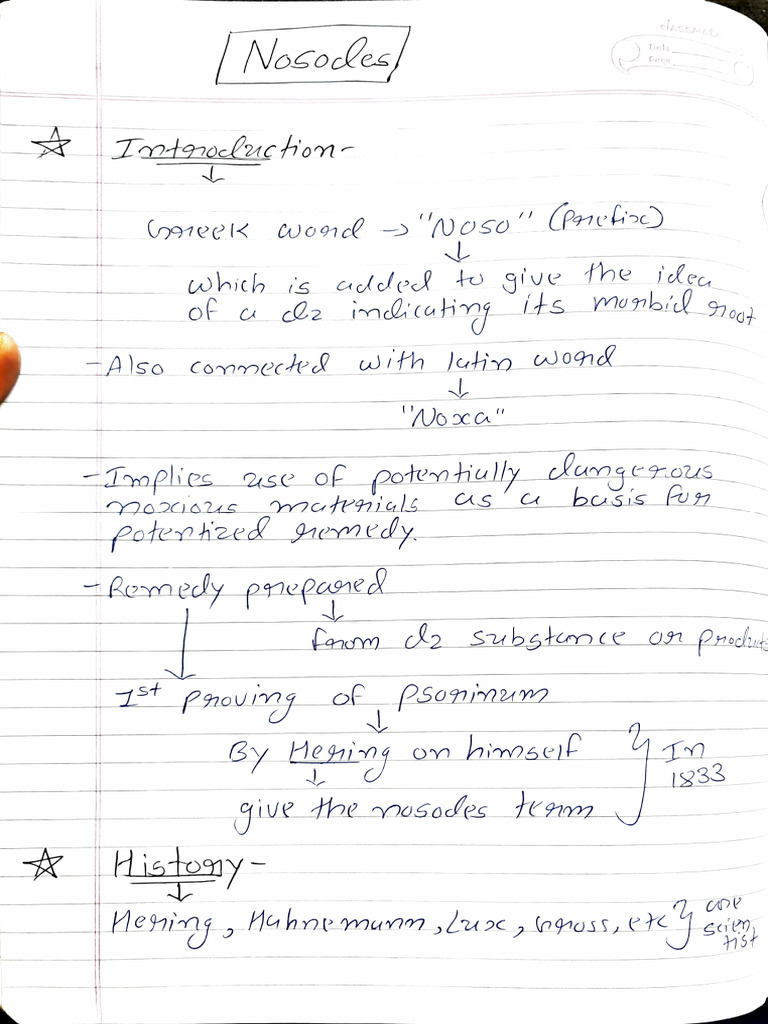 classmate
Date
Page
Nosodes
☆ Introduction-
↓
Greek word → "NOSO" (Prefix)
↓
which is added to give the idea
of a dz indicating its morbid root
- Also connected with latin word
↓
"Noxa"
- Implies use of potentially dangerous
noxious materials as a basis for
potentized remedy.
- Remedy prepared
↓
from dz substance or products
1st proving of psorinum
↓
By Hering on himself } In
↓ 1833
give the nosodes term
☆ History-
↓
Hering, Hahnemann, Lux, Gross, etc } are
scien
tist